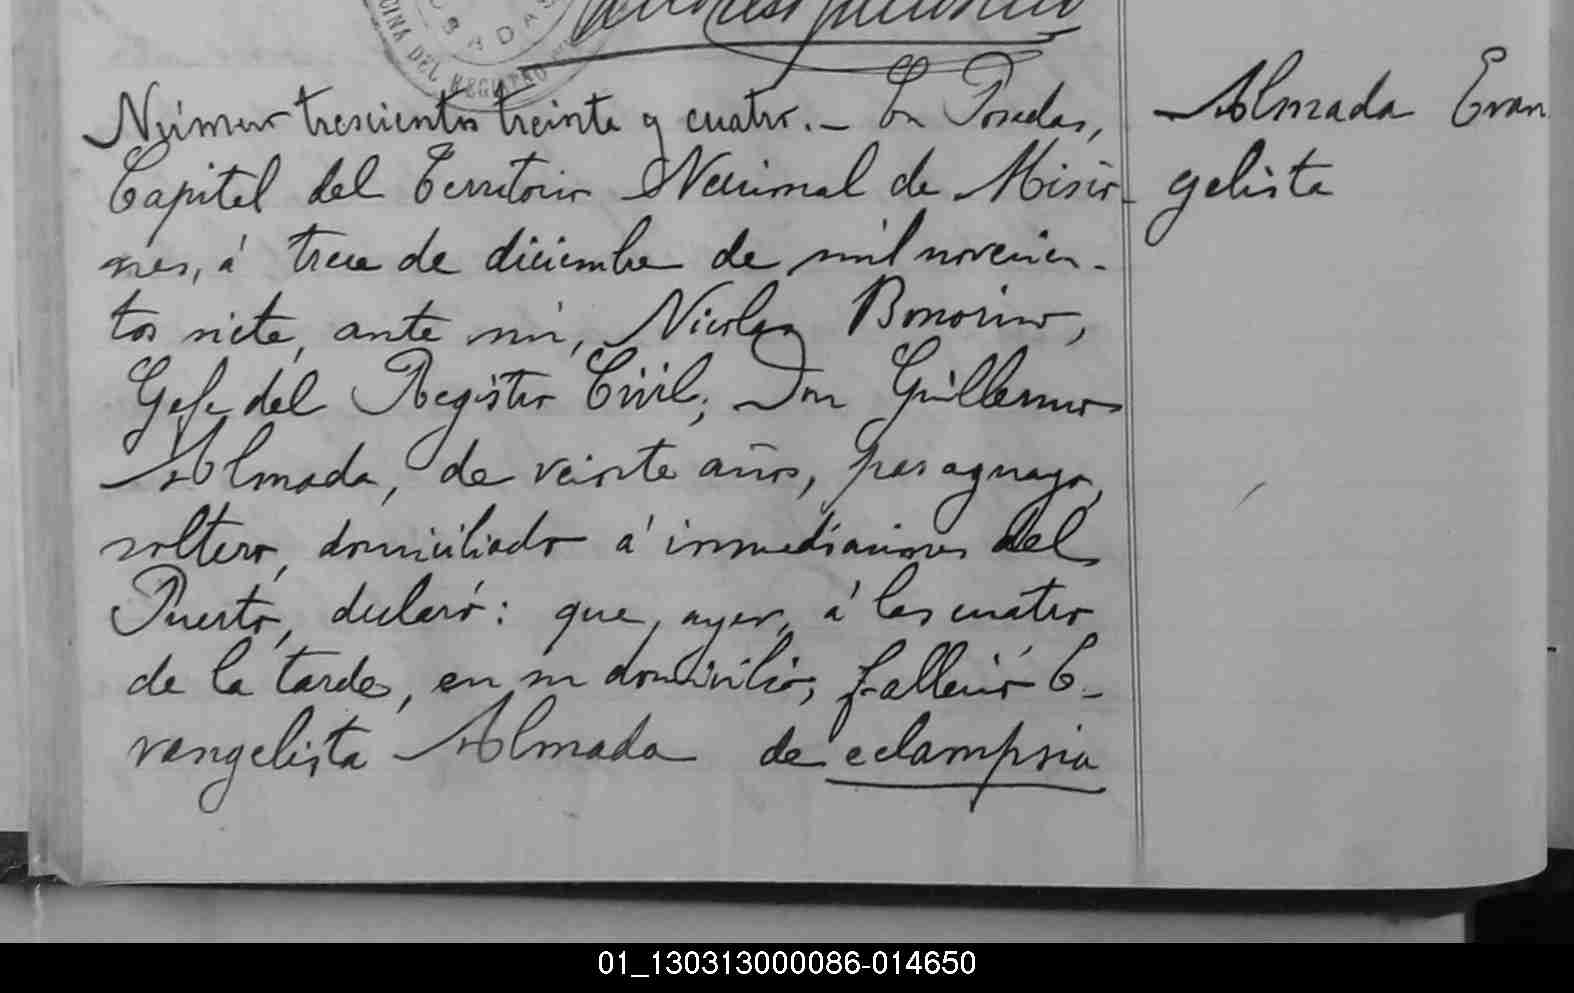 POSADAS
OFICINA DEL REGISTRO
Número trescientos treinta y cuatro.- En Posadas,
Capital del Territorio Nacional de Misio-
nes, á trece de diciembre de mil novecien-
tos siete, ante mí, Nicolas Bonorino,
Gefe del Registro Civil; Don Guillermo
Almada, de veinte años, paraguayo,
soltero, domiciliado á inmediaciones del
Puerto, declaró: que, ayer, á las cuatro
de la tarde, en su domicilio, falleció E-
vangelista Almada de eclampsia
Almada Evan
gelista
01_130313000086-014650